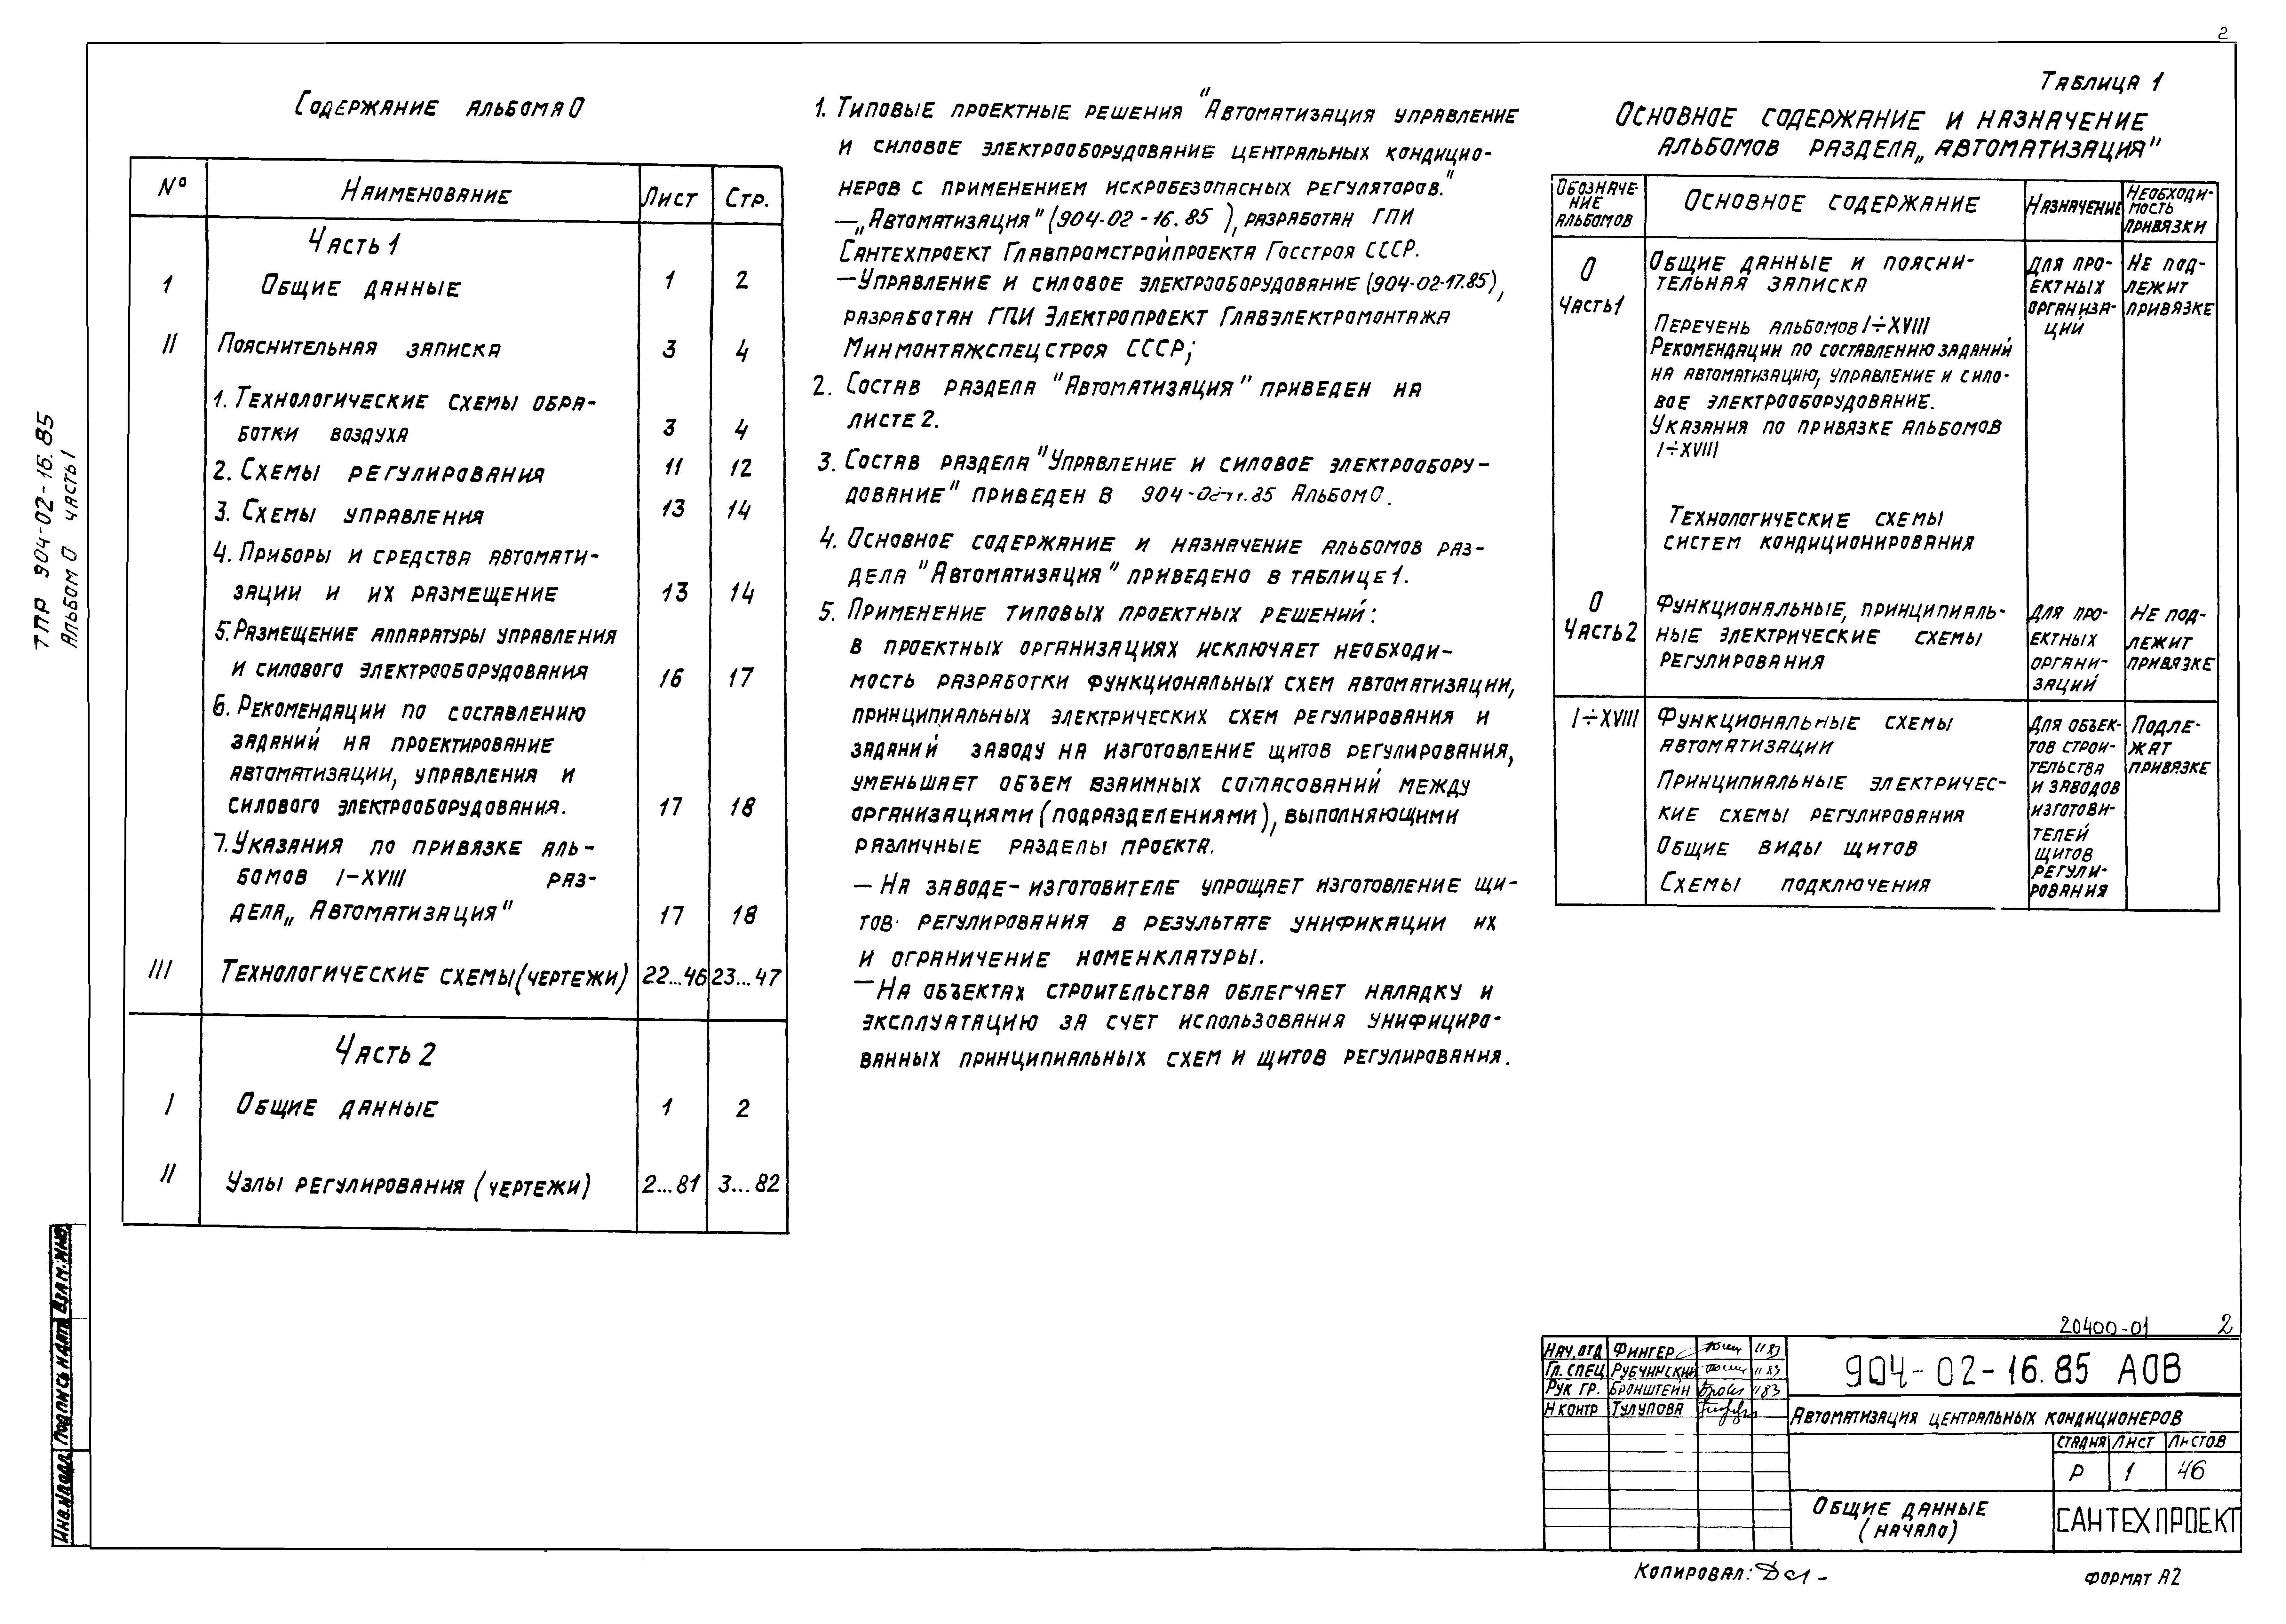 2
ТПР 904-02-16.85
Альбом 0 часть 1
Содержание альбома 0
№ Наименование Лист Стр.
Часть 1
1 Общие данные 1 2
II Пояснительная записка 3 4
1. Технологические схемы обра-
ботки воздуха 3 4
2. Схемы регулирования 11 12
3. Схемы управления 13 14
4. Приборы и средства автомати-
зации и их размещение 13 14
5. Размещение аппаратуры управления
и силового электрооборудования 16 17
6. Рекомендации по составлению
заданий на проектирование
автоматизации, управления и
силового электрооборудования. 17 18
7. Указания по привязке аль-
бомов I-XVIII раз-
дела „Автоматизация" 17 18
III Технологические схемы (чертежи) 22...46 23...47
Часть 2
I Общие данные 1 2
II Узлы регулирования (чертежи) 2...81 3...82
1. Типовые проектные решения "Автоматизация управление
и силовое электрооборудование центральных кондицио-
неров с применением искробезопасных регуляторов."
— „Автоматизация" (904-02-16.85), разработан ГПИ
Сантехпроект Главпромстройпроекта Госстроя СССР.
— Управление и силовое электрооборудование (904-02-17.85),
разработан ГПИ Электропроект Главэлектромонтажа
Минмонтажспецстроя СССР;
2. Состав раздела "Автоматизация" приведен на
листе 2.
3. Состав раздела "Управление и силовое электрообору-
дование" приведен в Альбом 0.
4. Основное содержание и назначение альбомов раз-
дела "Автоматизация" приведено в таблице 1.
5. Применение типовых проектных решений:
в проектных организациях исключает необходи-
мость разработки функциональных схем автоматизации,
принципиальных электрических схем регулирования и
заданий заводу на изготовление щитов регулирования,
уменьшает объем взаимных согласований между
организациями (подразделениями), выполняющими
различные разделы проекта.
— На заводе-изготовителе упрощает изготовление щи-
тов регулирования в результате унификации их
и ограничение номенклатуры.
— На объектах строительства облегчает наладку и
эксплуатацию за счет использования унифициро-
ванных принципиальных схем и щитов регулирования.
Таблица 1
Основное содержание и назначение
альбомов раздела „Автоматизация"
Обозначе-
ние
альбомов
Основное содержание
Назначение
Необходи-
мость
привязки
0
часть 1
Общие данные и поясни-
тельная записка
Перечень альбомов I÷XVIII
Рекомендации по составлению заданий
на автоматизацию, управление и сило-
вое электрооборудование.
Указания по привязке альбомов
I÷XVIII
Технологические схемы
систем кондиционирования
для про-
ектных
организа-
ций
Не под-
лежит
привязке
0
Часть 2
Функциональные, принципиаль-
ные электрические схемы
регулирования
для про-
ектных
органи-
заций
Не под-
лежит
привязке
I÷XVIII
Функциональные схемы
автоматизации
Принципиальные электричес-
кие схемы регулирования
Общие виды щитов
Схемы подключения
Для объек-
тов строи-
тельства
и заводов
изготови-
телей
щитов
регули-
рования
Подле-
жат
привязке
Инв.№подл. Подпись и дата Взам.инв.
20400-01 2
Нач.отд Фингер 11 83
Гл. спец Рубчинский 11 83
Рук гр. Бронштейн 11 83
Н контр Тулупова
904-02-16.85 АОВ
Автоматизация центральных кондиционеров
Стадия Лист Листов
Р 1 46
Общие данные
(начало)
САНТЕХПРОЕКТ
Копировал:
Формат А2